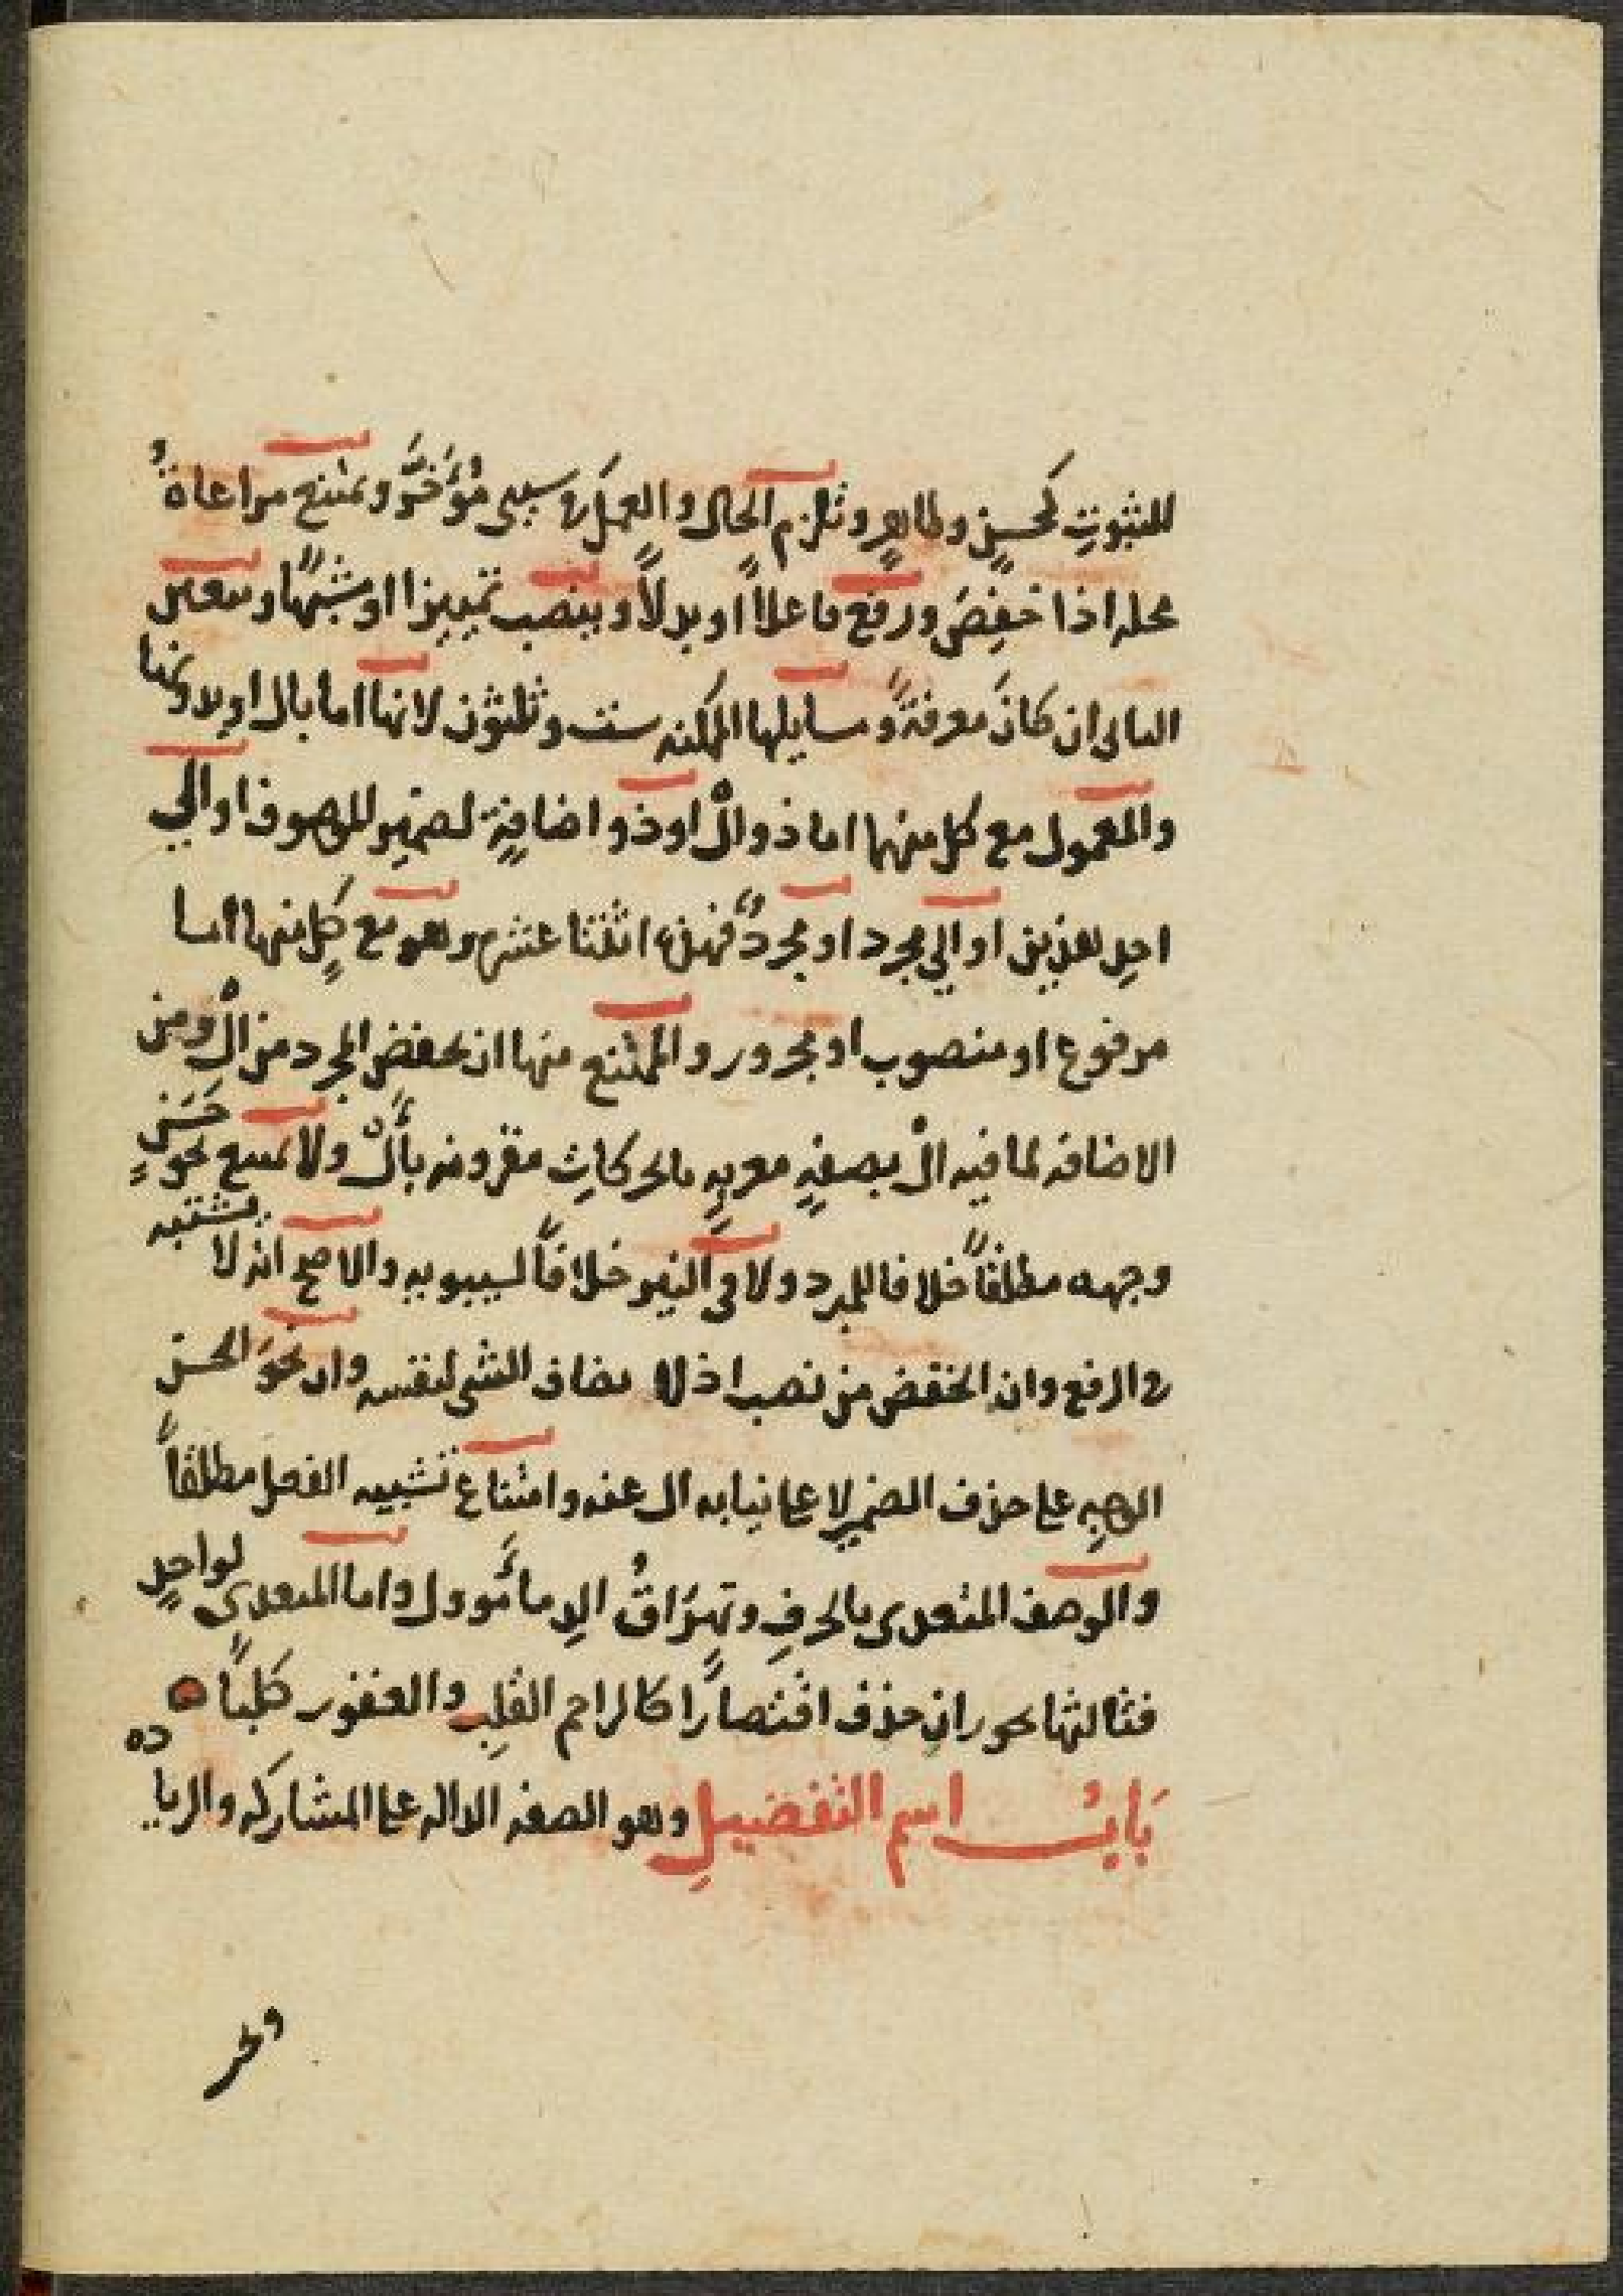 للثبوتِ كحسنٍ وطاهرٍ وتلزم الحال والعمل في سببي مُؤَخَّرٍ ويمتنع مراعاةُ
محله اذا خفِضَ ورفع فاعلاً او بدلاً وينصب تمييزا او مشبهًا وتتعين
الثاني ان كانَ معرفةً ومسايلها الممكنه ست وثلثون لانها اما بال او بدونها
والمعمول مع كل منهما اما ذو الْ او ذو اضافةٍ لضميرِ الموصوف او الي
احدِ هذين او الي مجرد او مجردٌ فهذه اثنتا عشره وهو مع كلٍ منها اما
مرفوع او منصوب او مجرور والممتنع منها ان يخفض المجرد من الْ ومن
الاضافه لما فيه الْ بصفةٍ معربةٍ بالحركاتِ مقرونه بأَلْ ولا يمتنع نحو حَسَنٍ
وجهه مطلقاً خلافا للمبرد ولا في النثر خلافاً لسيبويه والاصح انه لا يشتبه
في الرفع وان الخفض من نصب اذ لا يضاف الشي لنفسه وان نحوَ الحسن
الوجهِ على حذف الضميرِ لا على نيابه ال عنه وامتناع تشبيه الفعل مطلقاً
والوصف المتعدى بالحرفِ وتهرَاقُ الدما مُأَوول واما المتعدى لواحدٍ
فثالثها يجوز ان حذف اقتصارًا كالراحم القلبِ والعقور كلبًا
بَابُ اسم التفضيلِ وهو الصفه الداله على المشاركه والزياده